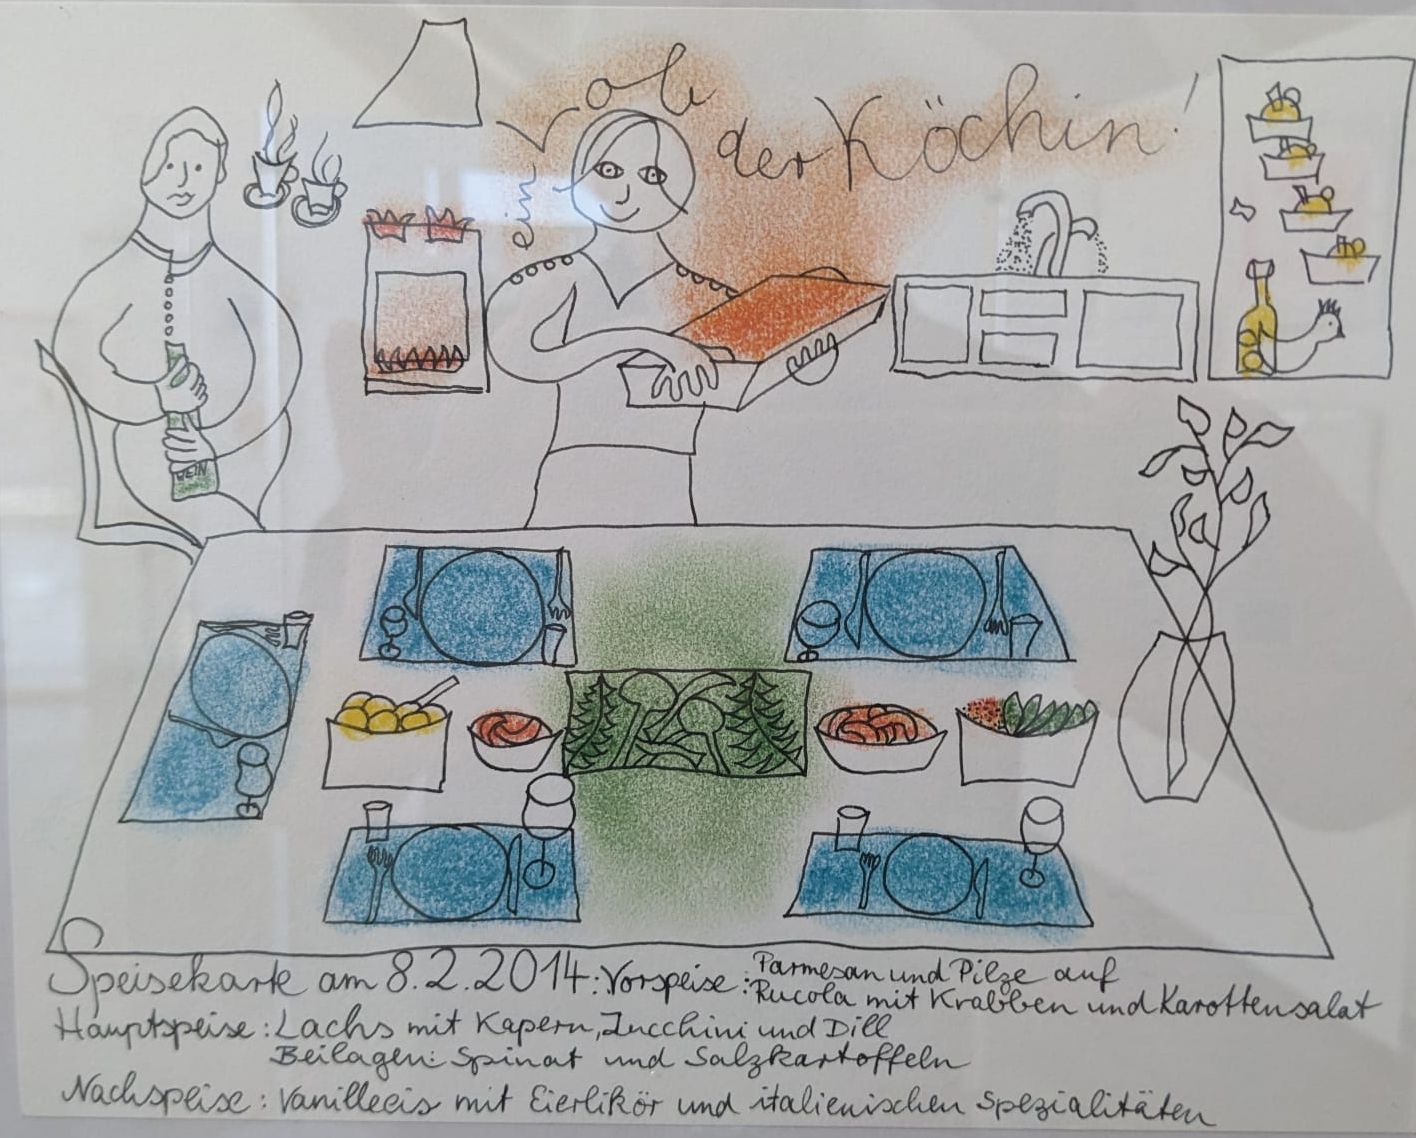 ein Lob der Köchin!
WEIN
Speisekarte am 8.2.2014: Vorspeise: Parmesan und Pilze auf
Rucola mit Krabben und Karottensalat
Hauptspeise: Lachs mit Kapern, Zucchini und Dill
Beilagen: Spinat und Salzkartoffeln
Nachspeise: Vanilleeis mit Eierlikör und italienischen Spezialitäten